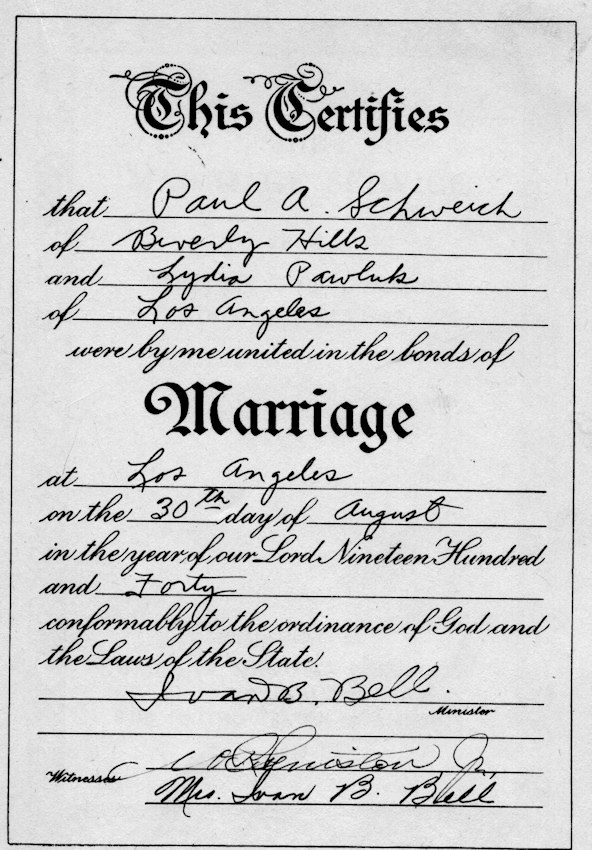 This Certifies
that Paul A. Schweich
of Beverly Hills
and Lydia Pawluk
of Los Angeles
were by me united in the bonds of
Marriage
at Los Angeles
on the 30th day of August
in the year of our Lord Nineteen Hundred
and Forty
conformably to the ordinance of God and
the Laws of the State.
Ivan B. Bell.
Minister
Jr.
Witnesses
Mrs. Ivan B. Bell